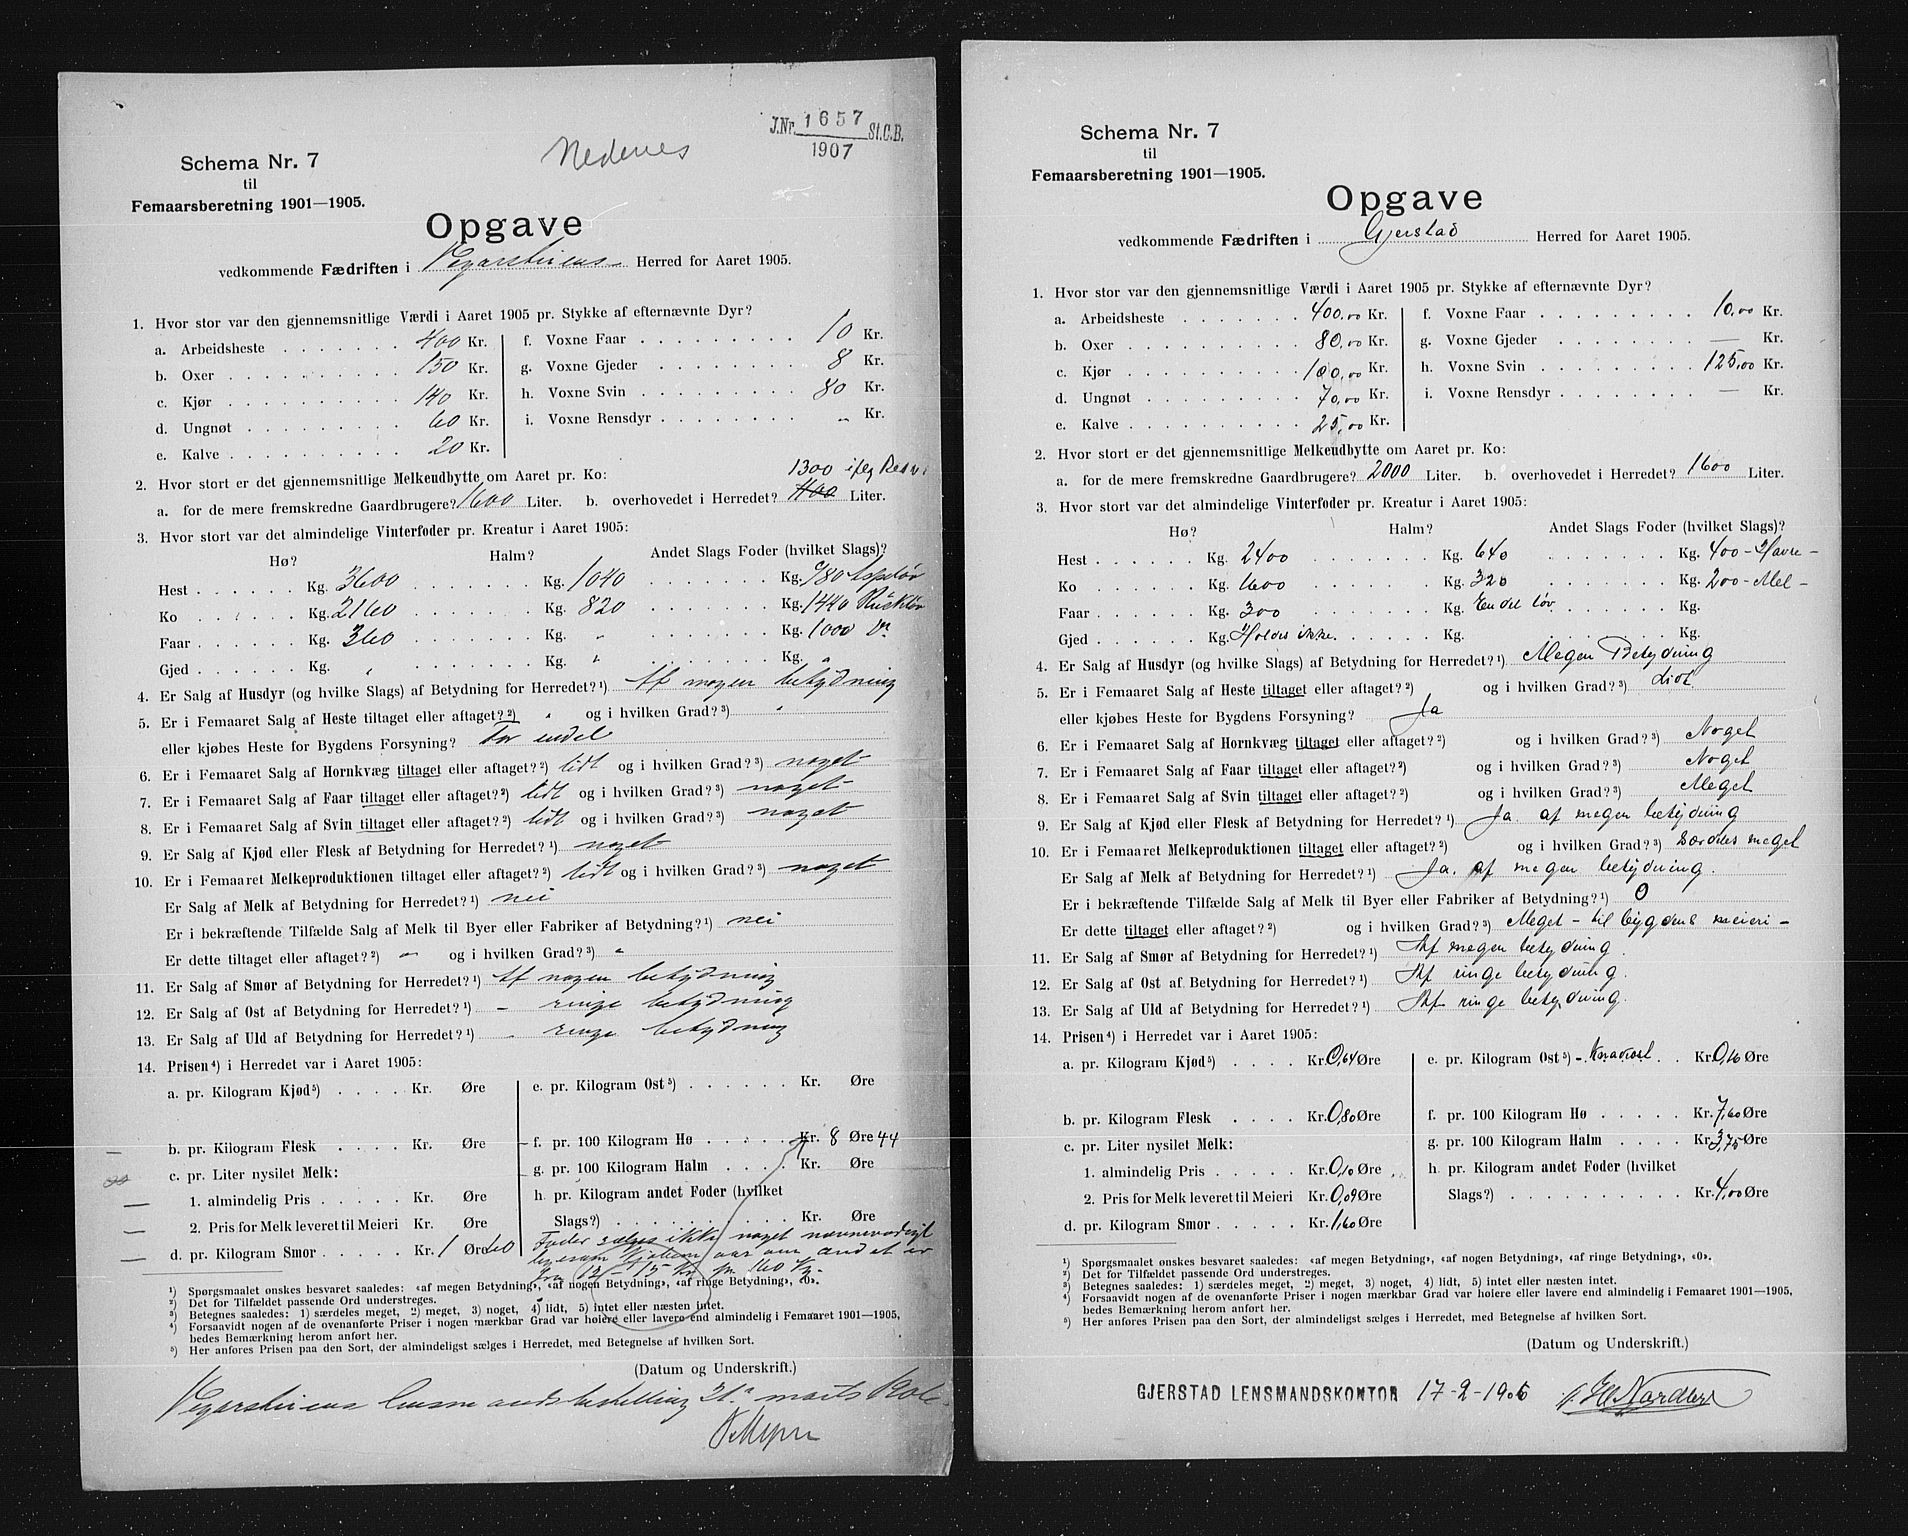 J.Nr. 1657 St.C.B.
1907
Nedenes
Schema Nr. 7
til
Femaarsberetning 1901—1905.
Opgave
vedkommende Fædriften i Vegårsheiens Herred for Aaret 1905.
1. Hvor stor var den gjennemsnitlige Værdi i Aaret 1905 pr. Stykke af efternævnte Dyr?
a. Arbeidsheste 400 Kr.
b. Oxer 150 Kr.
c. Kjør 140 Kr.
d. Ungnøt 60 Kr.
e. Kalve 20 Kr.
f. Voxne Faar 10 Kr.
g. Voxne Gjeder 8 Kr.
h. Voxne Svin 80 Kr.
i. Voxne Rensdyr „ Kr.
2. Hvor stort er det gjennemsnitlige Melkeudbytte om Aaret pr. Ko:
1300
a. for de mere fremskredne Gaardbrugere? 1600 Liter. b. overhovedet i Herredet? Liter.
3. Hvor stort var det almindelige Vinterfoder pr. Kreatur i Aaret 1905:
Hø? Halm? Andet Slags Foder (hvilket Slags)?
Hest Kg. 3600 Kg. 1040 Kg. 980 Aspeløv
Ko Kg. 2160 Kg. 820 Kg. 1440 Riskløv
Faar Kg. 360 Kg. „ Kg. 1000 Do
Gjed Kg. „ Kg. „ Kg. „
4. Er Salg af Husdyr (og hvilke Slags) af Betydning for Herredet?¹) Af nogen betydning
5. Er i Femaaret Salg af Heste tiltaget eller aftaget?²) „ og i hvilken Grad?³) „
eller kjøbes Heste for Bygdens Forsyning? For endel
6. Er i Femaaret Salg af Hornkvæg tiltaget eller aftaget?²) lidt og i hvilken Grad?³) noget
7. Er i Femaaret Salg af Faar tiltaget eller aftaget?²) lidt og i hvilken Grad?³) noget
8. Er i Femaaret Salg af Svin tiltaget eller aftaget?²) lidt og i hvilken Grad?³) noget
9. Er Salg af Kjød eller Flesk af Betydning for Herredet?¹) noget
10. Er i Femaaret Melkeproduktionen tiltaget eller aftaget?²) lidt og i hvilken Grad?³) noget
Er Salg af Melk af Betydning for Herredet?¹) nei
Er i bekræftende Tilfælde Salg af Melk til Byer eller Fabriker af Betydning?¹) nei
Er dette tiltaget eller aftaget?²) „ og i hvilken Grad?³) „
11. Er Salg af Smør af Betydning for Herredet?¹) Af nogen betydning
12. Er Salg af Ost af Betydning for Herredet?¹) - ringe betydning
13. Er Salg af Uld af Betydning for Herredet?¹) - ringe betydning
14. Prisen⁴) i Herredet var i Aaret 1905:
a. pr. Kilogram Kjød⁵) Kr. Øre
b. pr. Kilogram Flesk Kr. Øre
c. pr. Liter nysilet Melk:
1. almindelig Pris Kr. Øre
2. Pris for Melk leveret til Meieri Kr. Øre
d. pr. Kilogram Smør Kr. 1 Øre 60
e. pr. Kilogram Ost⁵) Kr. Øre
f. pr. 100 Kilogram Hø Kr. 8 Øre 44
g. pr. 100 Kilogram Halm Kr. Øre
h. pr. Kilogram andet Foder (hvilket
Slags?) Kr. Øre
Foder sælges ikke noget nævneværdigt
fra 12 - 15 Kr. pr. 160 Kg.
¹) Spørgsmaalet ønskes besvaret saaledes: «af megen Betydning», «af nogen Betydning», «af ringe Betydning», «0».
²) Det for Tilfældet passende Ord understreges.
³) Betegnes saaledes: 1) særdeles meget, 2) meget, 3) noget, 4) lidt, 5) intet eller næsten intet.
⁴) Forsaavidt nogen af de ovenanførte Priser i nogen mærkbar Grad var høiere eller lavere end almindelig i Femaaret 1901—1905,
bedes Bemærkning herom anført her.
⁵) Her anføres Prisen paa den Sort, der almindeligst sælges i Herredet, med Betegnelse af hvilken Sort.
(Datum og Underskrift.)
Vegårsheiens Lensmandsbestilling 31te marts
Schema Nr. 7
til
Femaarsberetning 1901—1905.
Opgave
vedkommende Fædriften i Gjerstad Herred for Aaret 1905.
1. Hvor stor var den gjennemsnitlige Værdi i Aaret 1905 pr. Stykke af efternævnte Dyr?
a. Arbeidsheste 400,00 Kr.
b. Oxer 80,00 Kr.
c. Kjør 100,00 Kr.
d. Ungnøt 70,00 Kr.
e. Kalve 25,00 Kr.
f. Voxne Faar 10,00 Kr.
g. Voxne Gjeder — Kr.
h. Voxne Svin 125,00 Kr.
i. Voxne Rensdyr — Kr.
2. Hvor stort er det gjennemsnitlige Melkeudbytte om Aaret pr. Ko:
a. for de mere fremskredne Gaardbrugere? 2000 Liter. b. overhovedet i Herredet? 1600 Liter.
3. Hvor stort var det almindelige Vinterfoder pr. Kreatur i Aaret 1905:
Hø? Halm? Andet Slags Foder (hvilket Slags)?
Hest Kg. 2400 Kg. 640 Kg. 400 - Havre -
Ko Kg. 1600 Kg. 320 Kg. 200 - Mel -
Faar Kg. 300 Kg. En del løv Kg.
Gjed Kg. Holdes ikke. Kg. Kg.
4. Er Salg af Husdyr (og hvilke Slags) af Betydning for Herredet?¹) Megen Betydning
5. Er i Femaaret Salg af Heste tiltaget eller aftaget?²) og i hvilken Grad?³) Lidt
eller kjøbes Heste for Bygdens Forsyning? Ja
6. Er i Femaaret Salg af Hornkvæg tiltaget eller aftaget?²) og i hvilken Grad?³) Noget
7. Er i Femaaret Salg af Faar tiltaget eller aftaget?²) og i hvilken Grad?³) Noget
8. Er i Femaaret Salg af Svin tiltaget eller aftaget?²) og i hvilken Grad?³) Meget
9. Er Salg af Kjød eller Flesk af Betydning for Herredet?¹) Ja. af megen betydning
10. Er i Femaaret Melkeproduktionen tiltaget eller aftaget?²) og i hvilken Grad?³) Særdeles meget
Er Salg af Melk af Betydning for Herredet?¹) Ja. af megen betydning.
Er i bekræftende Tilfælde Salg af Melk til Byer eller Fabriker af Betydning?¹) 0
Er dette tiltaget eller aftaget?²) og i hvilken Grad?³) Meget - til bygdens meieri -
11. Er Salg af Smør af Betydning for Herredet?¹) Af megen betydning
12. Er Salg af Ost af Betydning for Herredet?¹) Af ringe betydning.
13. Er Salg af Uld af Betydning for Herredet?¹) Af ringe betydning.
14. Prisen⁴) i Herredet var i Aaret 1905:
a. pr. Kilogram Kjød⁵) Kr. 0,64 Øre
b. pr. Kilogram Flesk Kr. 0,80 Øre
c. pr. Liter nysilet Melk:
1. almindelig Pris Kr. 0,10 Øre
2. Pris for Melk leveret til Meieri Kr. 0,09 Øre
d. pr. Kilogram Smør Kr. 1,60 Øre
e. pr. Kilogram Ost⁵) - Knadost. Kr. 0,16 Øre
f. pr. 100 Kilogram Hø Kr. 7,60 Øre
g. pr. 100 Kilogram Halm Kr. 3,75 Øre
h. pr. Kilogram andet Foder (hvilket
Slags?) Kr. 4,00 Øre
¹) Spørgsmaalet ønskes besvaret saaledes: «af megen Betydning», «af nogen Betydning», «af ringe Betydning», «0».
²) Det for Tilfældet passende Ord understreges.
³) Betegnes saaledes: 1) særdeles meget, 2) meget, 3) noget, 4) lidt, 5) intet eller næsten intet.
⁴) Forsaavidt nogen af de ovenanførte Priser i nogen mærkbar Grad var høiere eller lavere end almindelig i Femaaret 1901—1905,
bedes Bemærkning herom anført her.
⁵) Her anføres Prisen paa den Sort, der almindeligst sælges i Herredet, med Betegnelse af hvilken Sort.
(Datum og Underskrift.)
GJERSTAD LENSMANDSKONTOR 17-2-1906